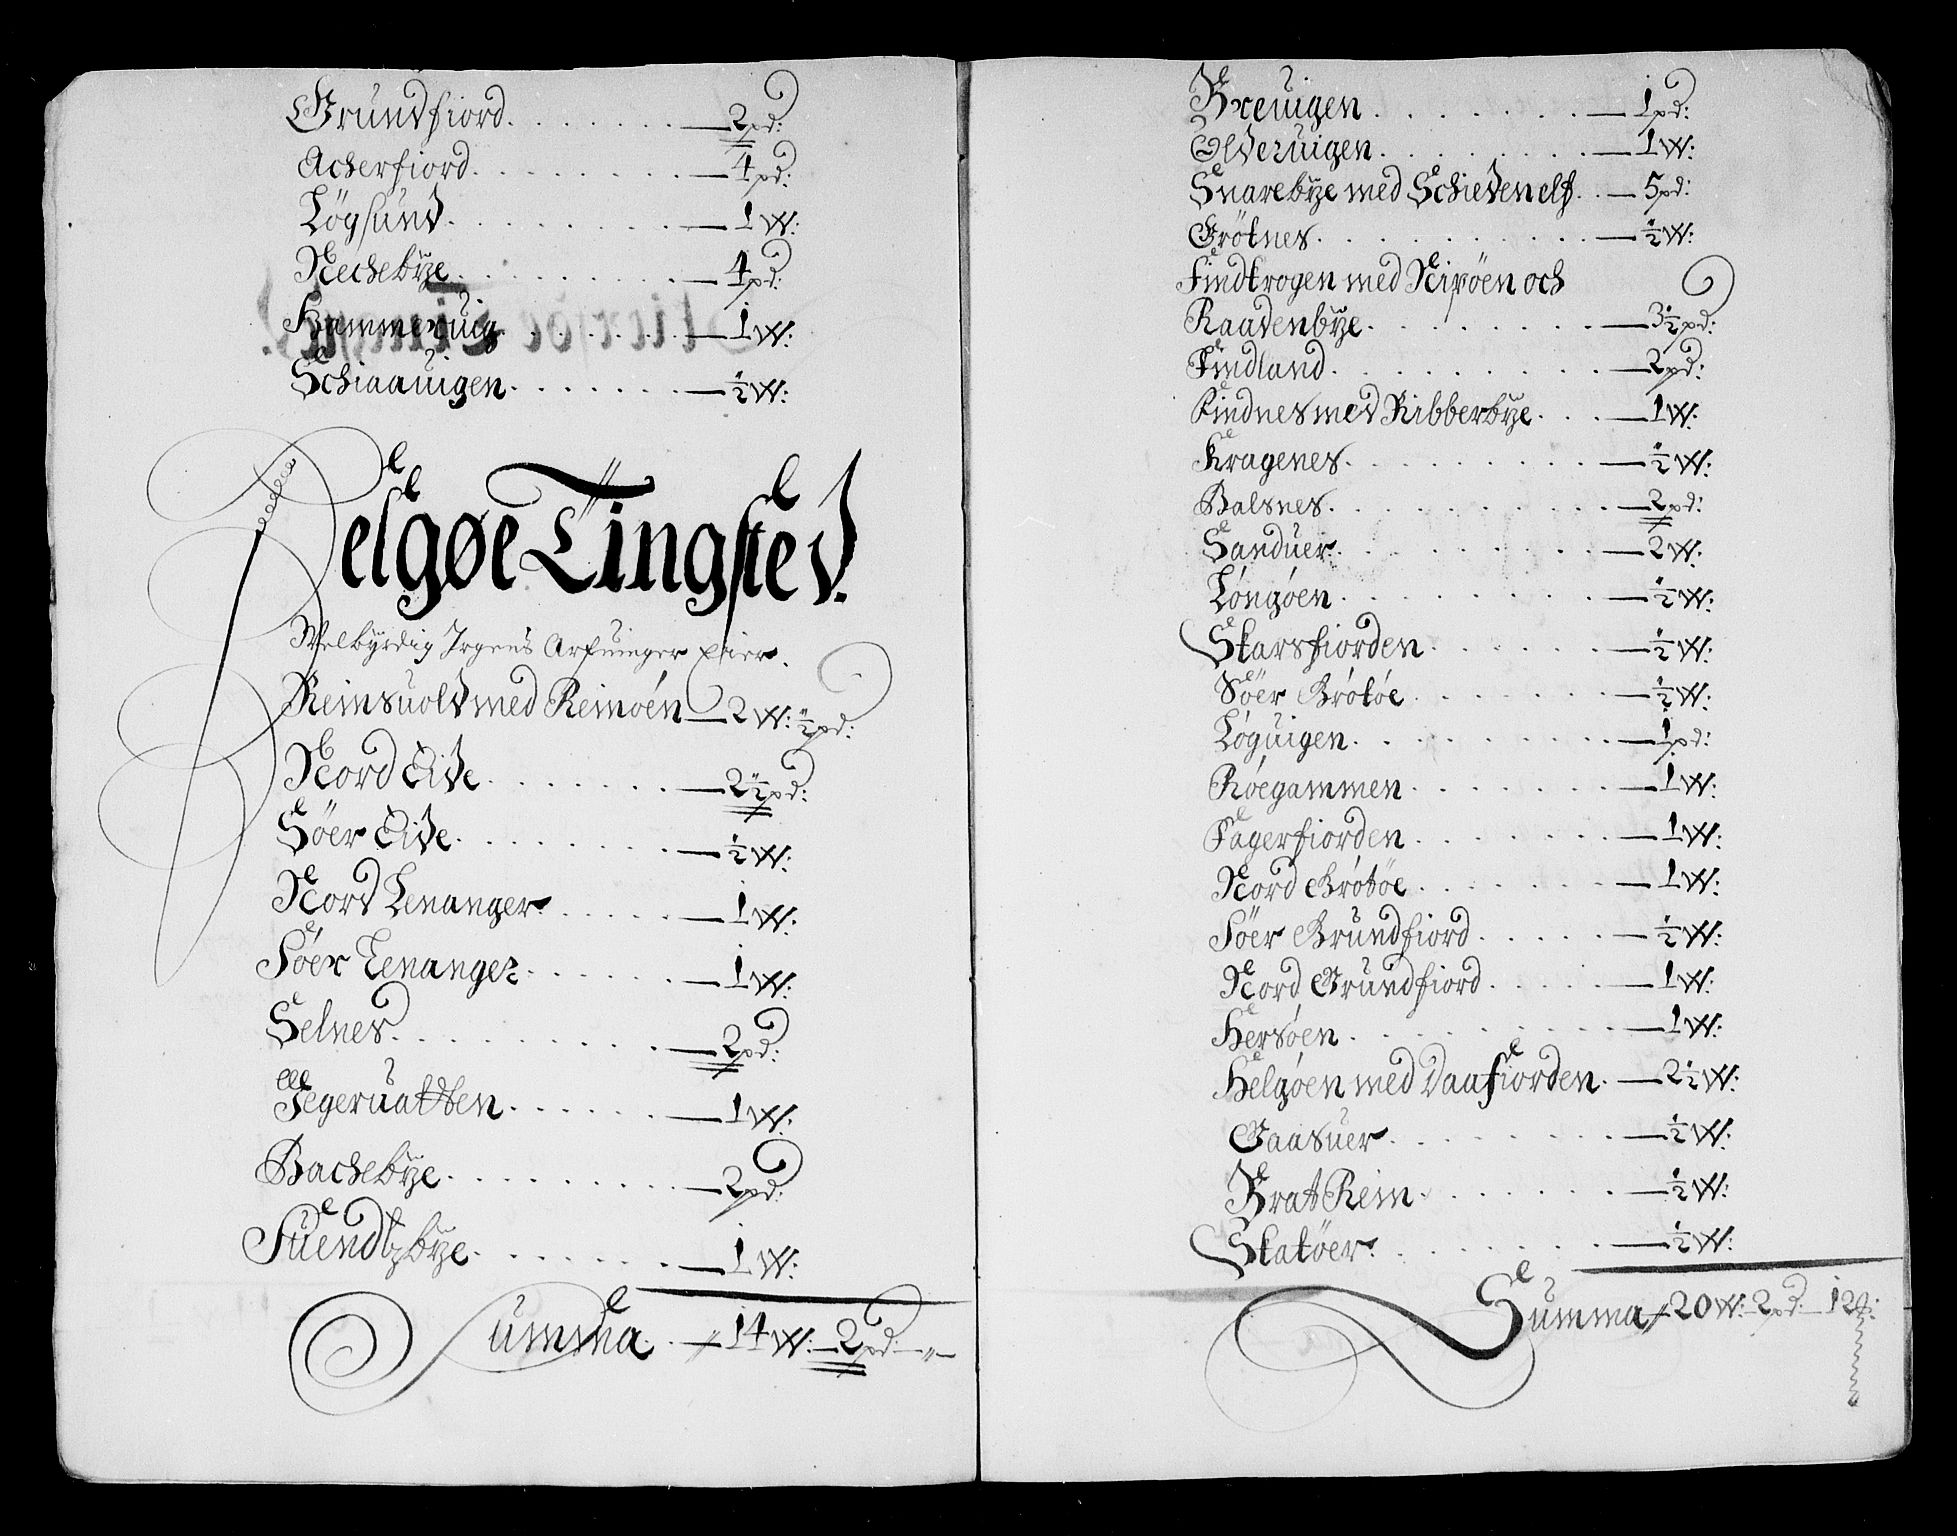 Grundfiord. . . . . . . — 2 pd:
Acherfiord. . . . . . . . — 4 pd:
Løgsund. . . . . . . . — 1 W:
Nechebye. . . . . . . . — 4 pd:
Hammeruig. . . . . . . — 1 W:
Schiaauigen. . . . . . . — ½ W:
Helgøe Tingsted.
Welbyrdig Irgens Arfuinger Eier.
Reinsuold med Reinøen — 2 W: ½ pd:
Nord Eide. . . . . . . — 2½ pd:
Söer Eide. . . . . . . . — ½ W:
Nord Lenanger. . . . . — 1 W:
Söer Lenanger. . . . . . — 1 W:
Selnes. . . . . . . . . — 2 pd:
Fegeruatten. . . . . . — 1 W:
Bachebye. . . . . . . . — 2 pd:
Suendtzbye. . . . . . — 1 W:
Summa. — 14 W: — 2 pd: — " —
Breuigen. . . . . . . — 1 pd:
Olderuigen. . . . . . . — 1 W:
Snarebye med Schieden elf. . — 5 pd:
Grötnes. . . . . . . . . — ½ W:
Findkrogen med Nipöen och
Raadenbye. . . . . . . . — 3½ pd:
Findland. . . . . . . . . — 2 pd:
Findnes med Ribberbye. . . — 1 W:
Kragenes. . . . . . . . — ½ W:
Balsnes. . . . . . . . . — 2 pd:
Sanduer. . . . . . . . — 2 W:
Löngöen. . . . . . . . — ½ W:
Skarsfiorden. . . . . . — ½ W:
Söer Grótøe. . . . . . — ½ W:
Løguigen. . . . . . . . — 1 pd:
Röegammen. . . . . . . — 1 W:
Fagerfiorden. . . . . . — 1 W:
Nord Grótøe. . . . . . — 1 W:
Söer Grundfiord. . . . . — ½ W:
Nord Grundfiord. . . . . — 1 W:
Hersöen. . . . . . . . — 1 W:
Helgöen med Daafiorden. — 2½ W:
Gaasuer. . . . . . . . — ½ W:
Brat Rein. . . . . . . — ½ W:
Skatöer. . . . . . . . — ½ W:
Summa — 20 W: 2 pd: — 12